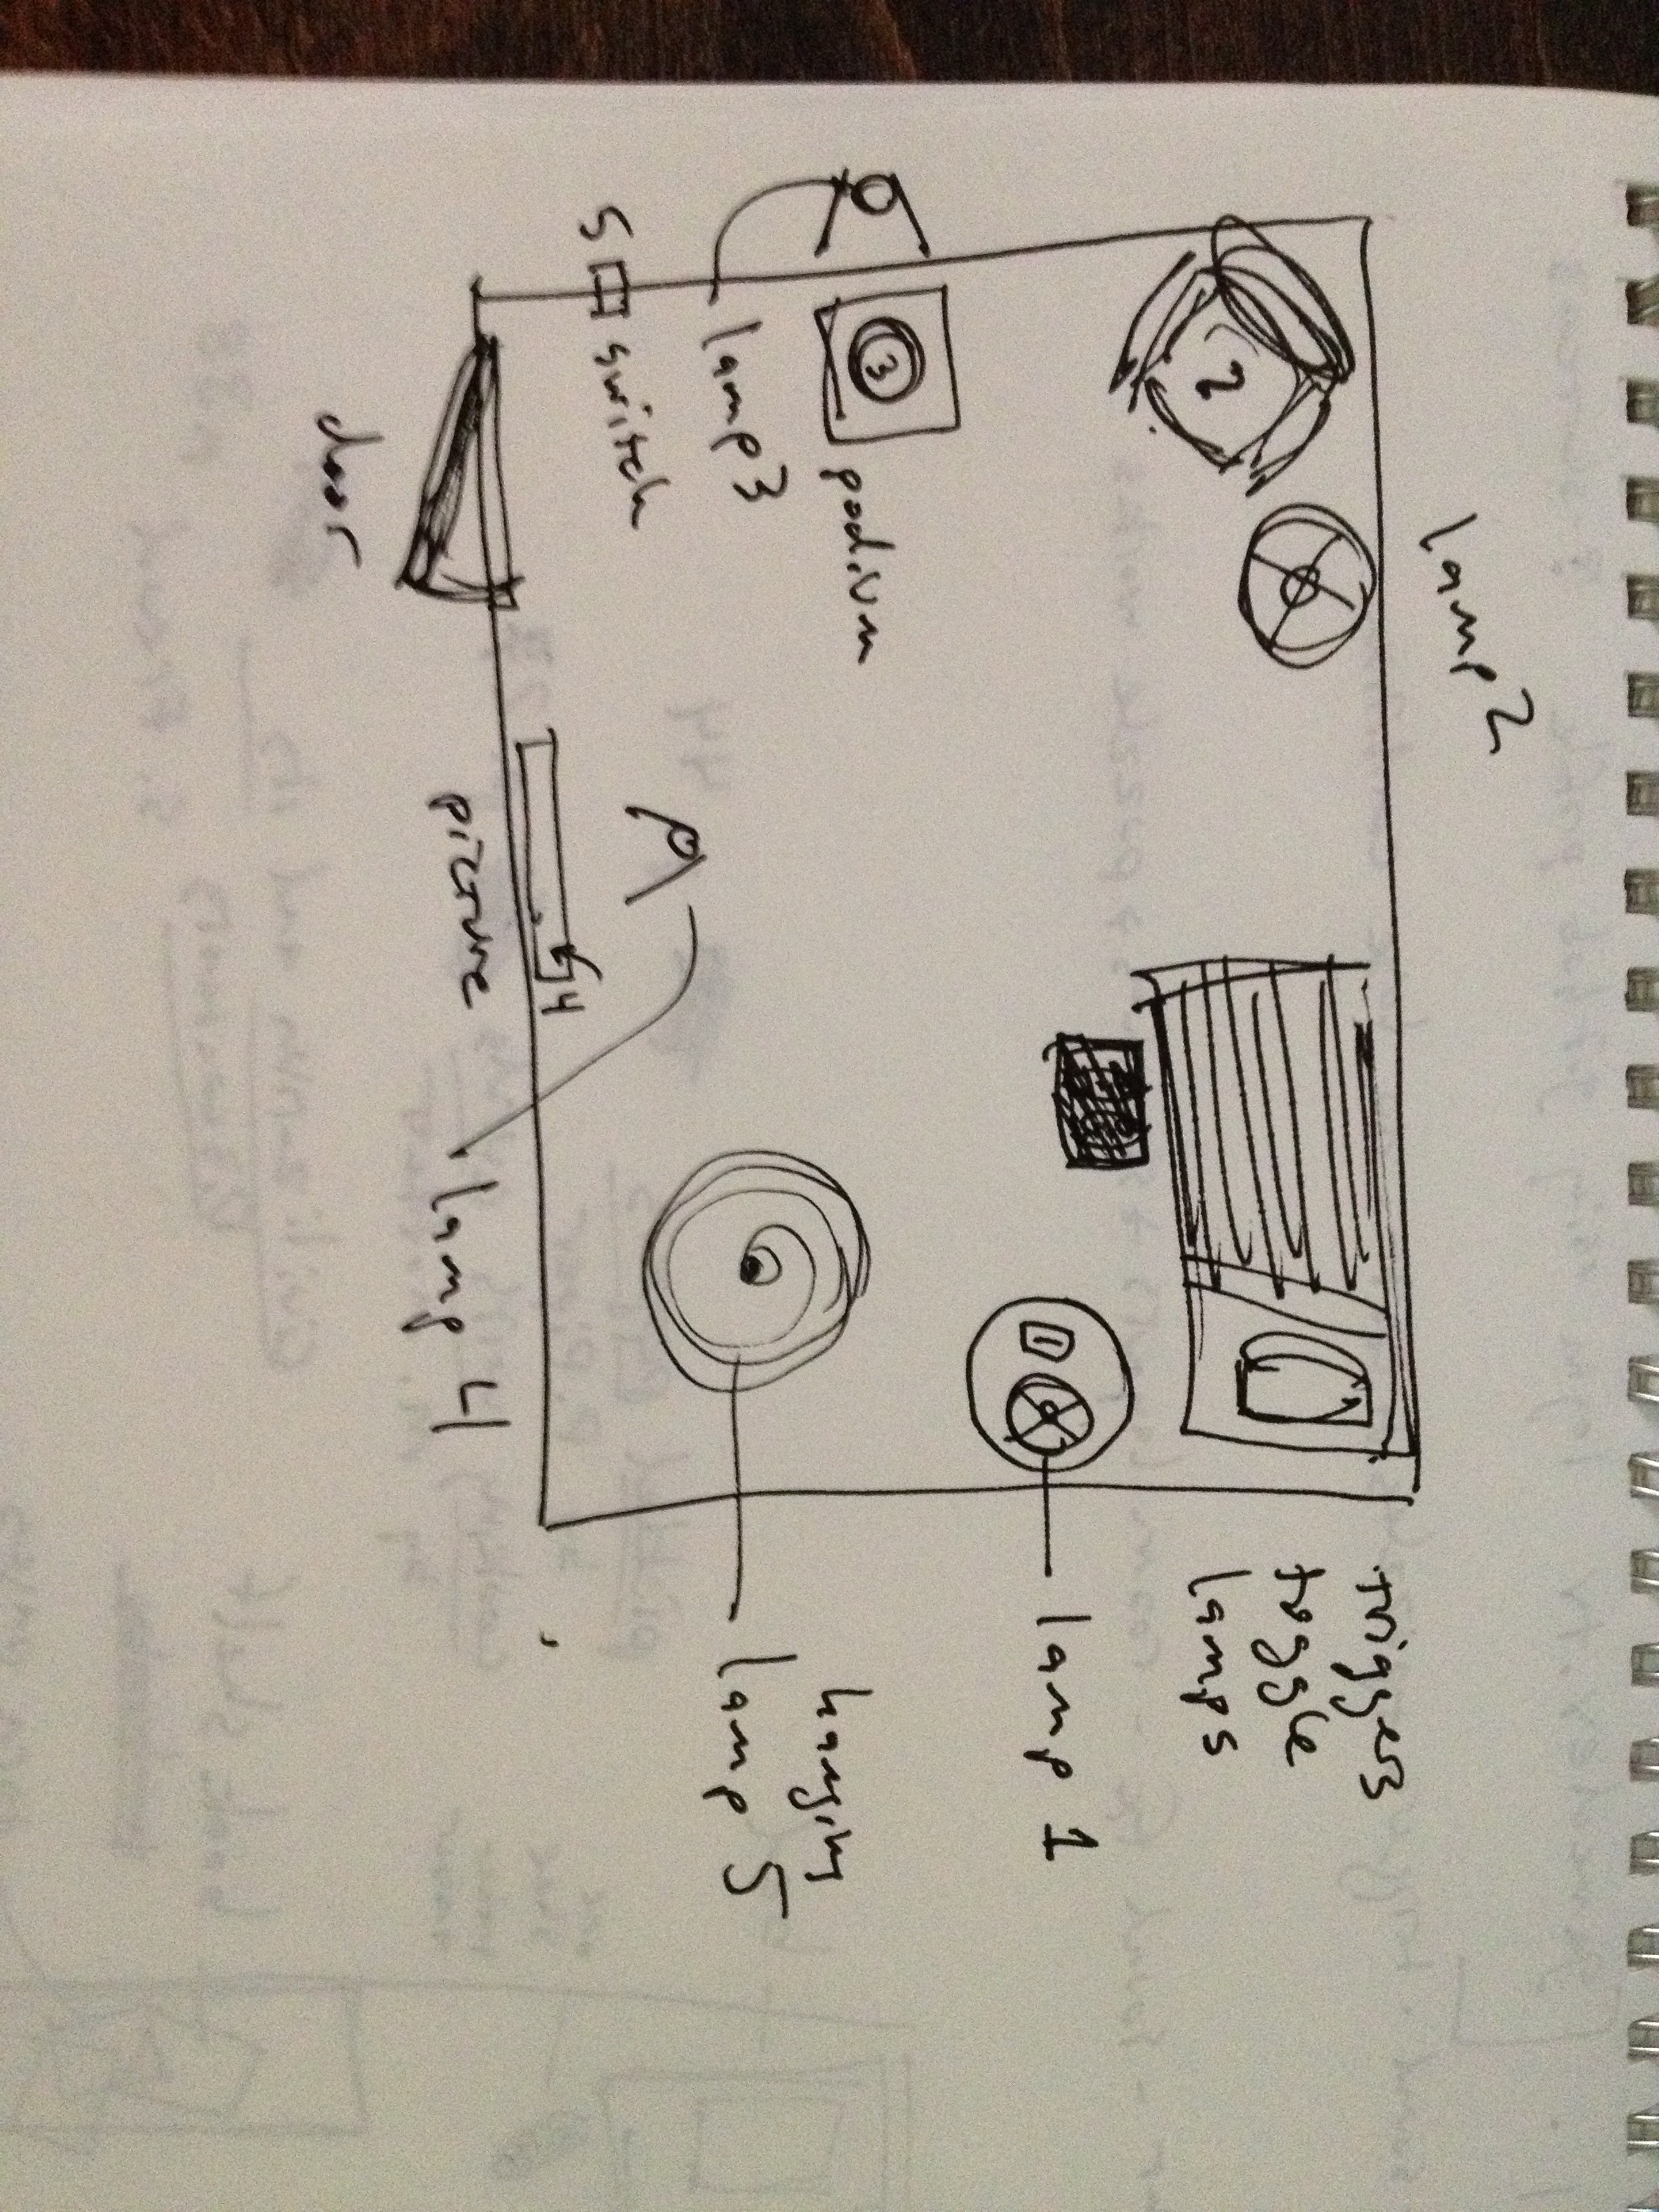 lamp 2
2
triggers
toggle
lamps
1
lamp 1
podium
3
hanging
lamp 5
lamp 3
switch
5
4
picture
lamp 4
door